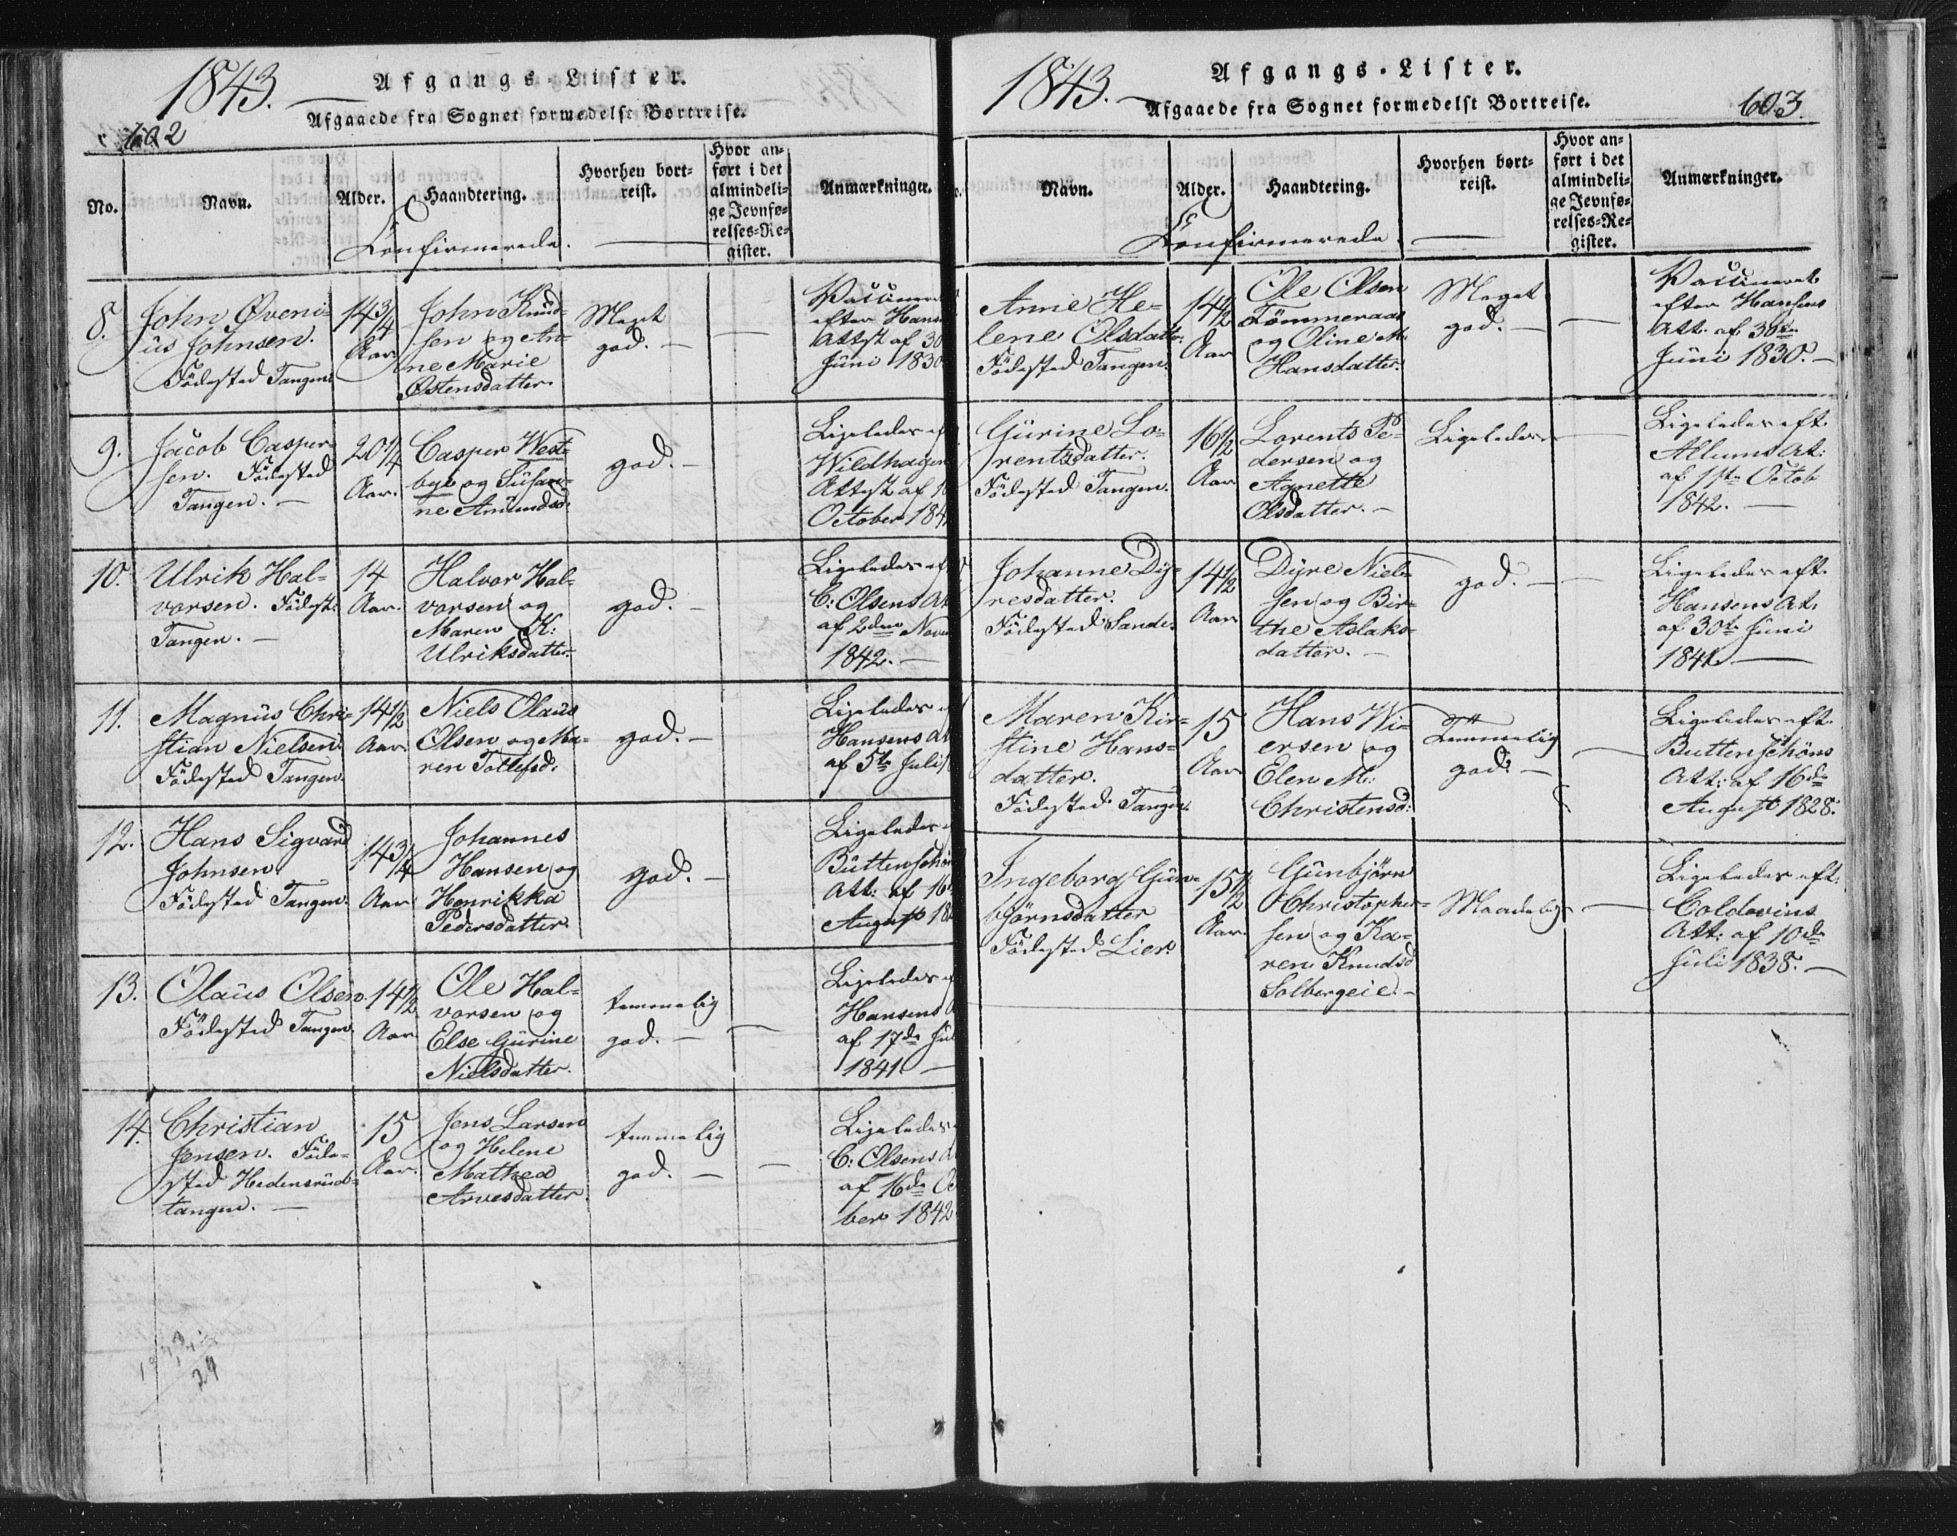 1843.
Afgangs-Lister.
Afgaaede fra Sognet formedelst Bortreise.
602
No.
Navn.
Alder.
Haandtering.
Hvorhen bort-
reist.
Hvor an-
ført i det
almindeli-
ge Jevnfø-
relses-Re-
gister.
Anmærkninger.
Confirmerede.
8.
John Øveni-
üs Johnsen.
Födested Tangen.
14 3/4
Aar
John Knud-
sen og An-
ne Marie
Østensdatter.
Meget
god. —
—
efter
Attest af 30
Juni 1830
9.
Jacob Casper-
sen. Födested
Tangen. —
20 1/4
Aar.
Casper West-
bye og Susan-
ne Amundsd.
god. —
Ligeledes
Wildhagen
Attest af
October
10.
Ulrik Hal-
vorsen. Födest:
Tangen. —
14
Aar.
Halvor Hal-
vorsen og
Maren K:
Ulriksdatter.
god. —
Ligeledes
C: Olsens At
af 2den Nov
1842. —
11.
Magnüs Chri-
stian Nielsen.
Födested Tangen.
14 1/2
Aar.
Niels Olaüs
Olsen og Ma-
ren Tollefsd:
god. —
Ligeledes
Hansens
af 5te Juli
12.
Hans Sigvard
Johnsen.
Födested Tangen.
14 3/4
Aar
Johannes
Hansen og
Henrikka
Pedersdatter.
god. —
Ligeledes
Büttenschön
Att: af 16
August 18
13.
Olaüs Olsen.
Födested Tangen.
14 1/2
Aar
Ole Hal-
vorsen og
Else Gürine
Nielsdatter.
temmelig
god. —
—
Ligeledes
Hansens
af 17de Jul
1841 —
14.
Christian
Jensen. Föde-
sted Hedensrüd-
tangen. —
15
Aar.
Jens Larsen
og Helene
Mathea
Arvesdatter.
temmelig
god. —
—
Ligeledes
C: Olsens
af 16de
ber 1842
24
1843.
Afgangs-Lister.
Afgaaede fra Sognet formedelst Bortreise.
603.
Navn.
Alder.
Haandtering.
Hvorhen bort-
reist.
Hvor an-
ført i det
almindeli-
ge Jevnfø-
relses-Re-
gister.
Anmærkninger.
Confirmerede.
Anne He-
lene Olsdatt:
Födested Tangen.
14 1/2
Aar
Ole Olsen
Tömmeraas
og Oline M:
Hansdatter.
Meget
god. —
—
Vaccineret
efter Hansens
Att: af 30te
Juni 1830. —
Gürine Lo-
rentsdatter.
Födested Tangen.
16 1/2
Aar
Lorents Pe-
dersen og
Agnette
Olsdatter. —
Ligeledes.
—
Ligeledes eft:
Allums At:
af 1ste Octob
1842. —
Johanne Dÿ-
resdatter.
Födested Sande.
14 1/2
Aar
Dÿre Niel-
sen og Bir-
the Aslaks-
datter. —
god. —
—
Ligeledes eft:
Hansens At:
af 30te Juni
1841. —
Maren Kir-
stine Hans-
datter.
Födested Tangen.
15
Aar
Hans Wi-
ersen og
Elen M:
Christensd:
Temmelig
god. —
—
Ligeledes eft:
Buttenschöns
Att: af 16de
August 1828.
Ingeborg Gün-
björnsdatter
Födested Lier.
15 1/2
Aar
Gunbjørn
Christopher-
sen og Ka-
ren Knudsd
Solbergeie. —
Maadelig.
—
Ligeledes eft:
Coldevins
Att: af 10de
Juli 1838. —